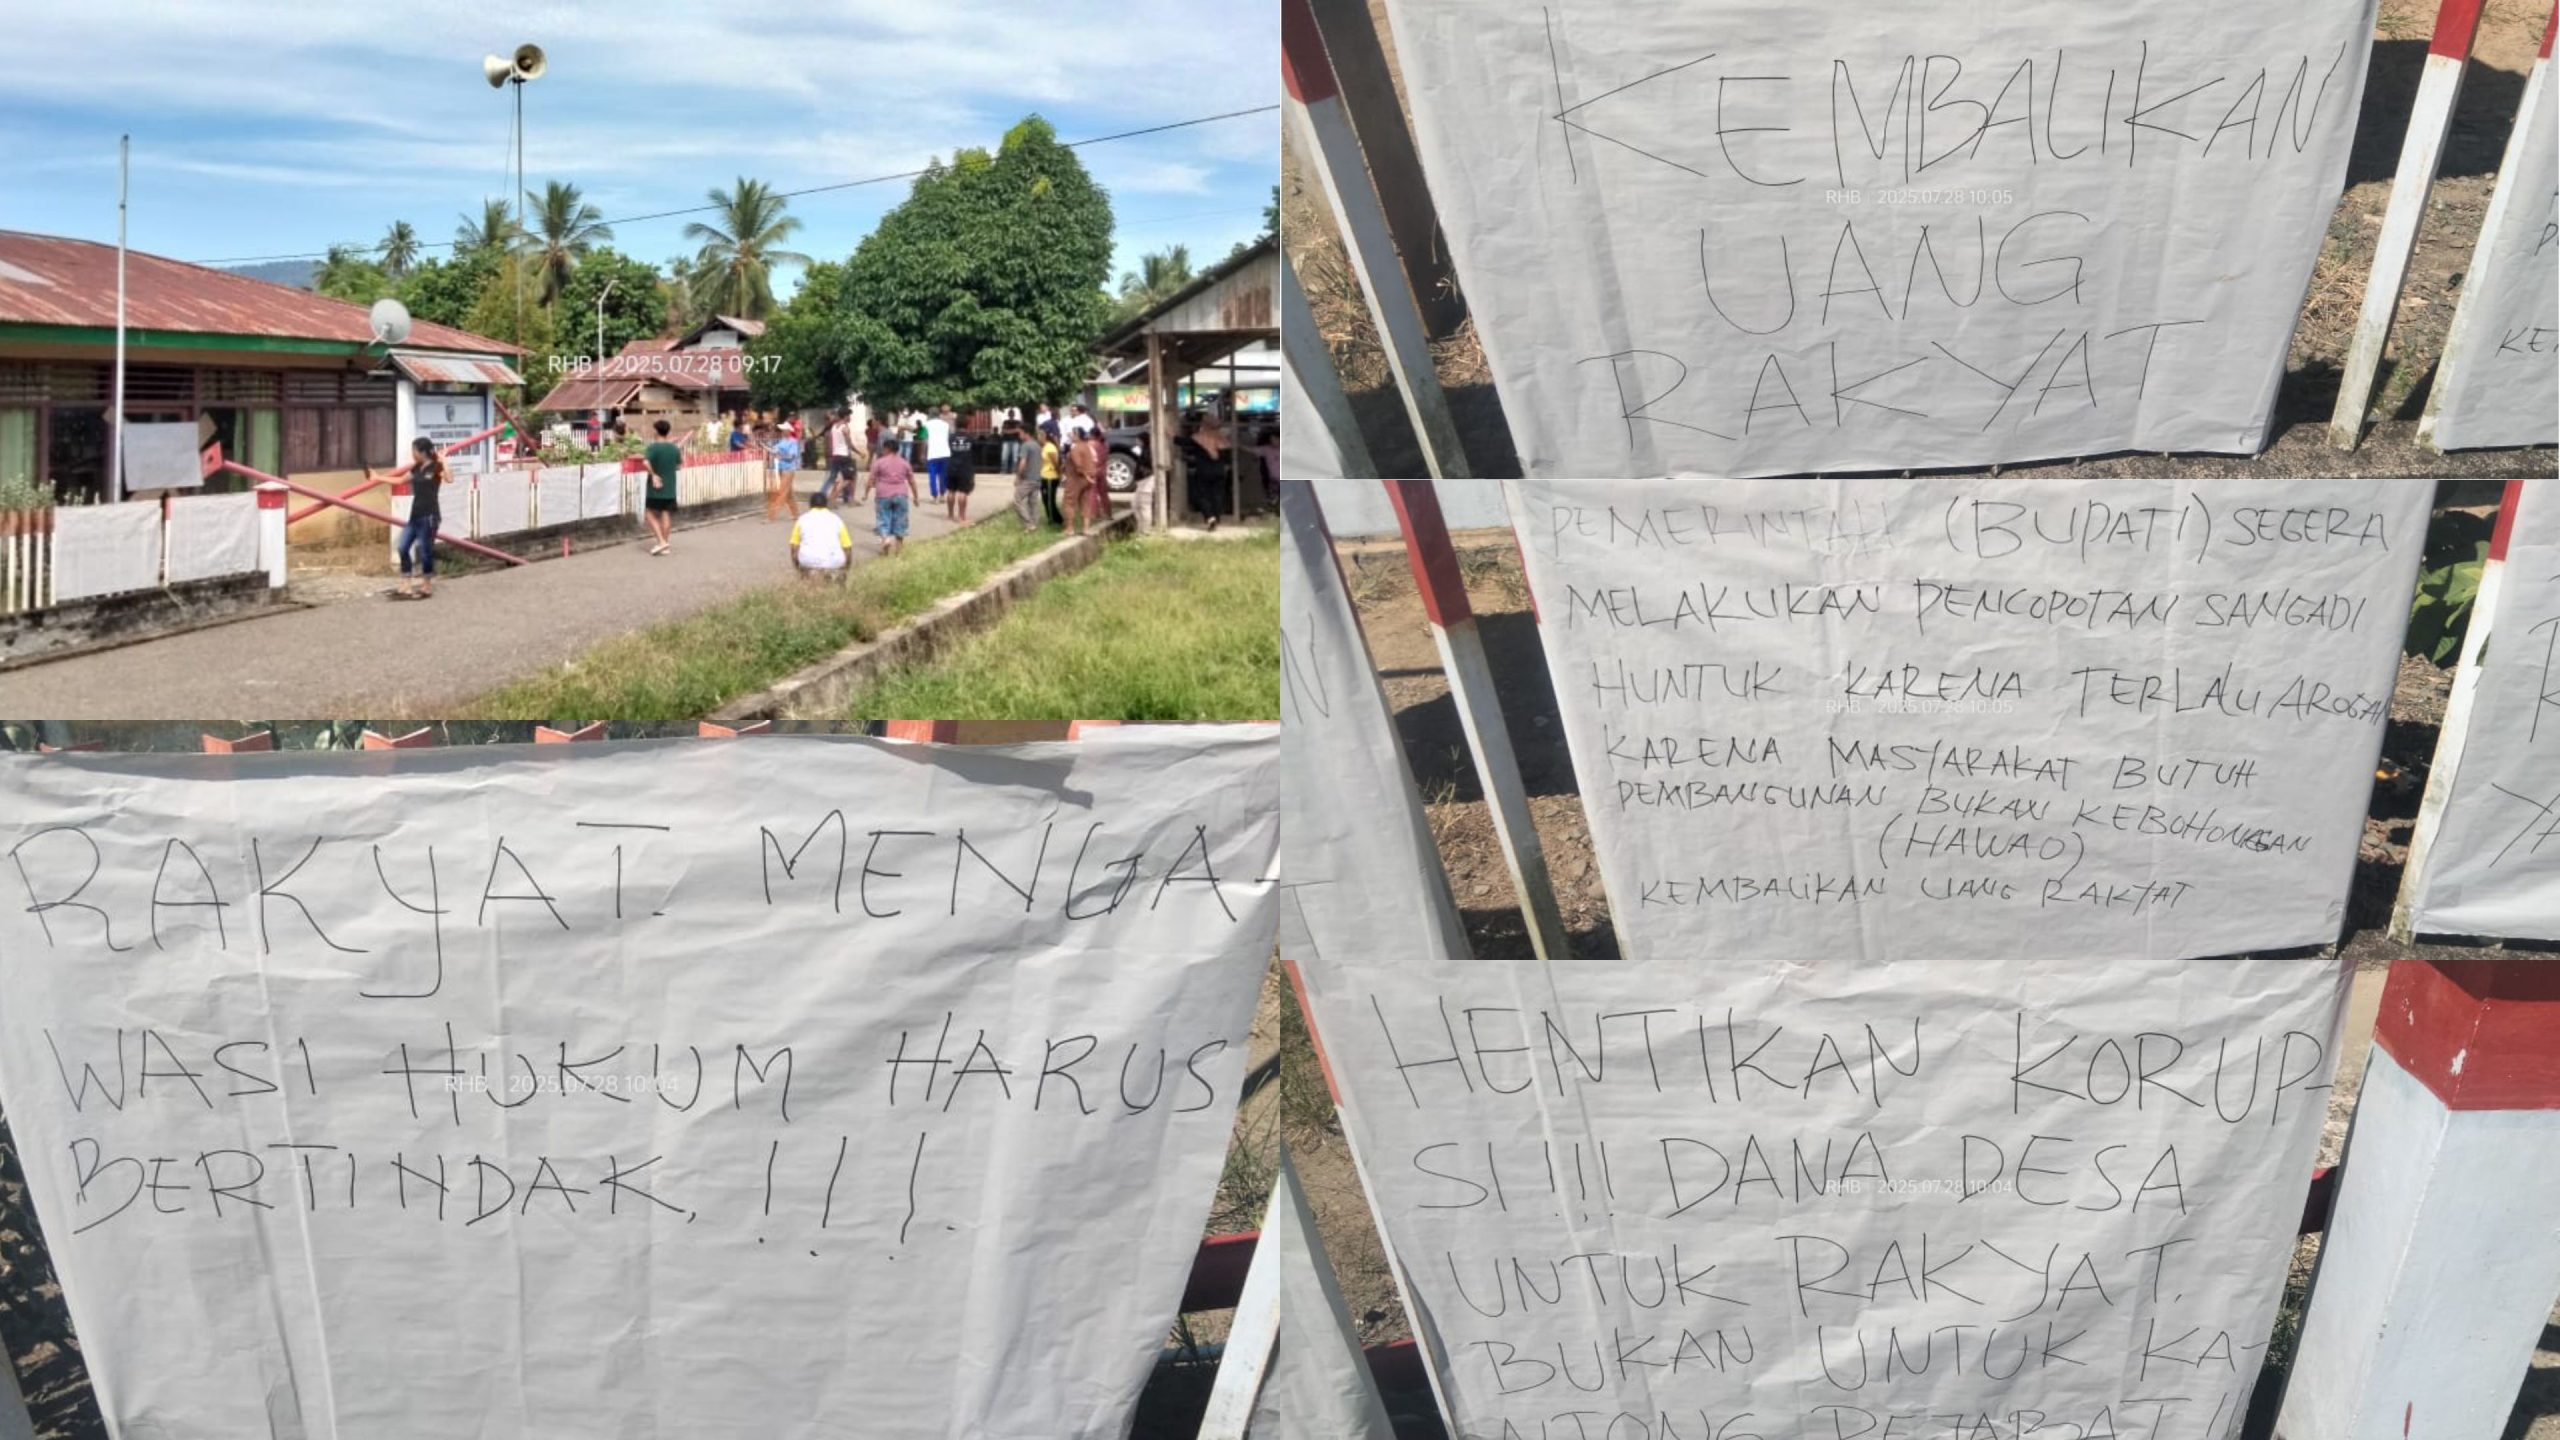 RHB | 2025.07.28 09:17
KEMBALIKAN
RHB | 2025.07.28 10:05
UANG
RAKYAT
PEMERINTAH (BUPATI) SEGERA
MELAKUKAN PENCOPOTAN SANGADI
HUNTUK KARENA TERLALU AROGAN
RHB | 2025.07.28 10:05
KARENA MASYARAKAT BUTUH
PEMBANGUNAN BUKAN KEBOHONGAN
(HAWAO)
KEMBALIKAN UANG RAKYAT
RAKYAT. MENGA-
WASI HUKUM HARUS
RHB | 2025.07.28 10:04
BERTINDAK, !!!
HENTIKAN KORUP-
SI!!! DANA DESA
RHB | 2025.07.28 10:04
UNTUK RAKYAT.
BUKAN UNTUK KA-
NTONG PEJABAT!!